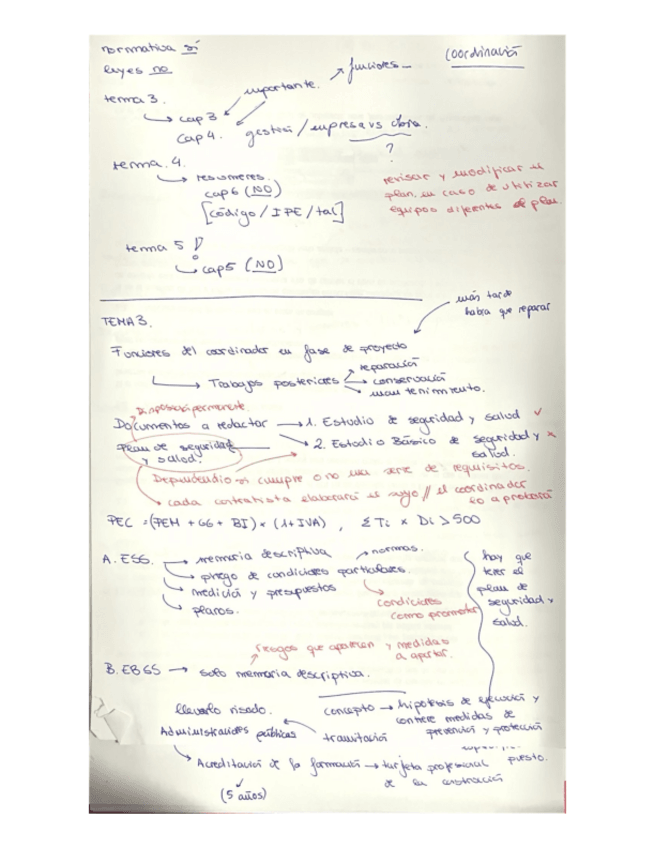 normativa sí
coordinación
leyes no
importante.
funciones
tema 3.
cap 3
cap 4. gestión / empresa vs obra.
?
tema 4.
resúmenes.
cap 6 (NO)
[código / IPE / tal]
revisar y modificar el
plan, en caso de utilizar
equipos diferentes al plan.
tema 5
cap 5 (NO)
más tarde
habrá que reparar
TEMA 3.
Funciones del coordinador en fase de proyecto
Trabajos posteriores
reparación
conservación
mantenimiento.
Disposición permanente.
Documentos a redactar
1. Estudio de seguridad y salud
2. Estudio Básico de seguridad y
salud.
Plan de seguridad
y salud.
Dependiendo si cumple o no una serie de requisitos.
cada contratista elaborará el suyo // el coordinador
lo aprobará
PEC = (PEM + GG + BI) × (1 + IVA) , ΣTi × Di > 500
A. ESS.
memoria descriptiva
normas.
pliego de condiciones particulares.
medición y presupuestos
planos.
condiciones
como promotor
hay que
tener el
plan de
seguridad y
salud.
riesgos que aparecen y medidas
a aportar.
B. EBSS
solo memoria descriptiva.
llevarlo visado.
concepto
hipótesis de ejecución y
contiene medidas de
prevención y protección
Administraciones públicas
tramitación
Acreditación de la formación
tarjeta profesional
de la construcción
puesto.
(5 años)